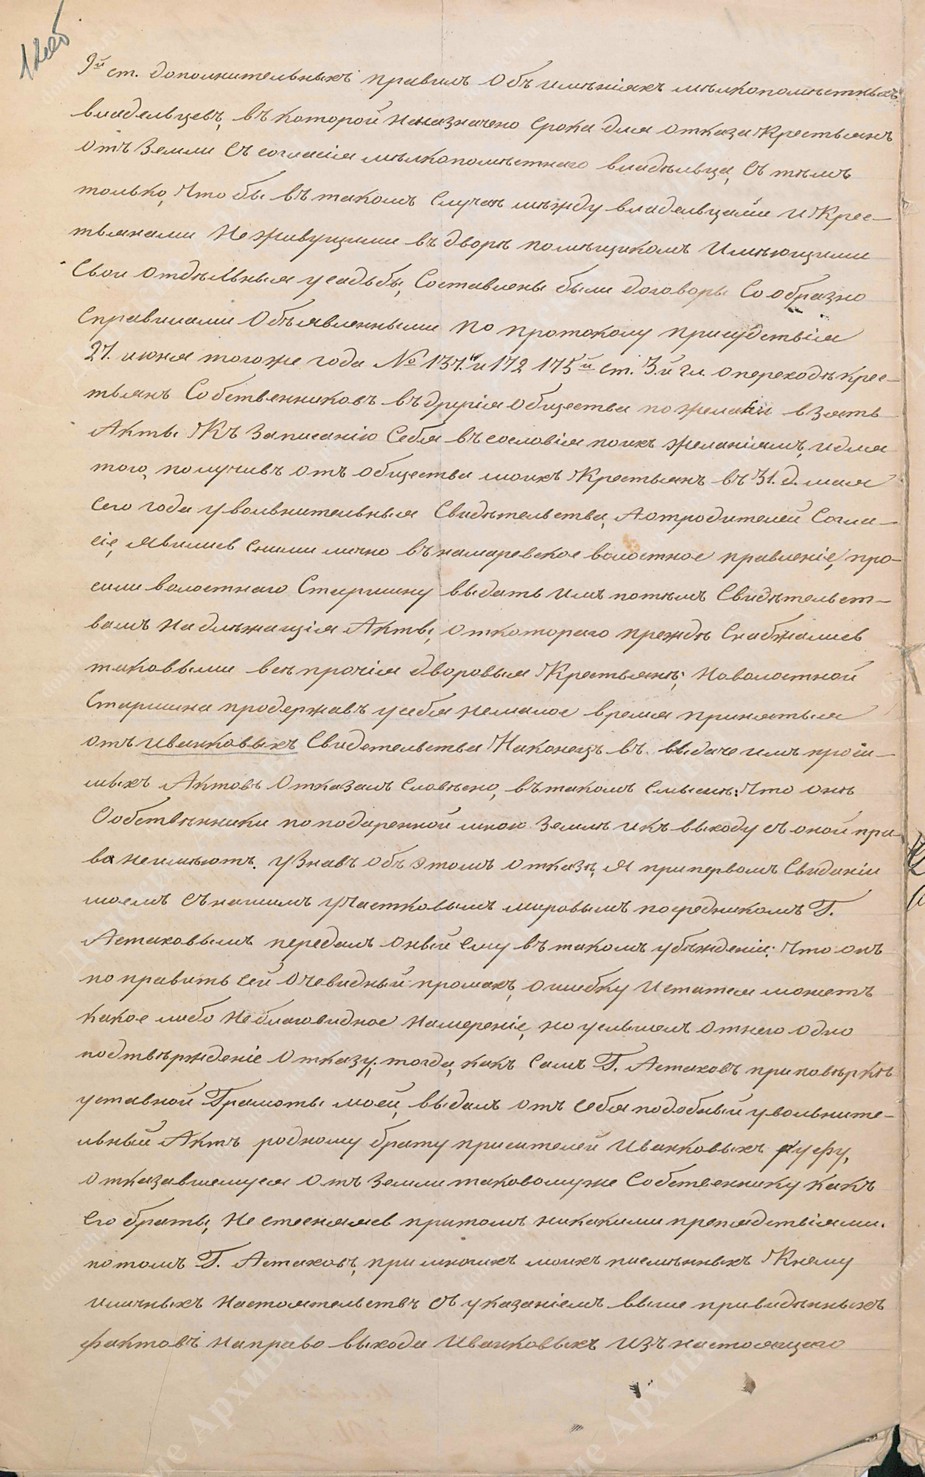 9й ст. дополнительныхъ правилъ Объ имѣніяхъ мѣлкопомѣстныхъ
владельцевъ, въ которой неназначено Срока для отказа Крестьянъ
отъ Земли Съ согласія мѣлкопомѣстнаго владѣльца, Съ тѣмъ
только, Что бы въ такомъ Случаѣ между владельцами и Крес-
тьянами Неживущими въ дворѣ помѣщикомъ Имѣющими
Свои отдѣльныя усадьбы, Составлены были договоры Сообразно
Справилами Объявленными По протоколу присудствія
27. июня того же года № 137. и 172 175й ст. 3й гл. о переходѣ крес-
тьянъ Собственниковъ въ другія общества по желаніи взять
Акты Къ Записанію Себя въ сословія по ихъ желаніямъ, и для
того, получивъ отъ общества моихъ Крестьянъ въ 31. д. мая
сего года увольнительныя Свидѣтельства, А отродителей Согла-
сіе, явились Сними лично въ камаревское волостное правленіе, про-
сили волостнаго Старшину выдать имъ потѣмъ Свидѣтельст-
вамъ Надлѣжащія Акты, от котораго преждѣ Снабжались
таковыми всѣ прочія дворовыя Крестьянъ; Но волостной
Старшина продержавъ у себя немалое время принятыя
отъ Иванковыхъ Свидетельства Наконецъ въ выдаче имъ проси-
мыхъ Актовъ Отказалъ Словѣсно, въ такомъ Смыслѣ: Что онѣ
Собственники по подаренной мною Землѣ и къ выходу съ оной пра-
ва неимѣютъ. Узнавъ объ этомъ отказѣ, Я при первомъ Свиданіи
моемъ Съ нашимъ участковымъ мировымъ посредникомъ Г.
Астаховымъ передалъ оный ему въ такомъ убѣжденіи; Что онъ
поправитъ Сей очевидный промахъ, ошибку И статься можетъ
какое либо Неблаговидное Намереніе, но услышалъ от него одно
подтвѣржденіе отказу, тогда, какъ Самъ Г. Астаховъ при повѣркѣ
уставной Грамоты моей, выдалъ отъ себя подобный увольните-
льный Актъ родному брату просителей Иванковыхъ Руфу,
отказавшемуся отъ Земли таковому же Собственнику какъ
Его братьи, Не стесняясь притомъ никакими препядствіями.
потомъ Г. Астаховъ, при многихъ моихъ писмѣнныхъ Кнему
и личныхъ настоятельствъ Съ указаніемъ выше привидѣнныхъ
фактовъ На право выхода Иванковыхъ Изъ настоящаго